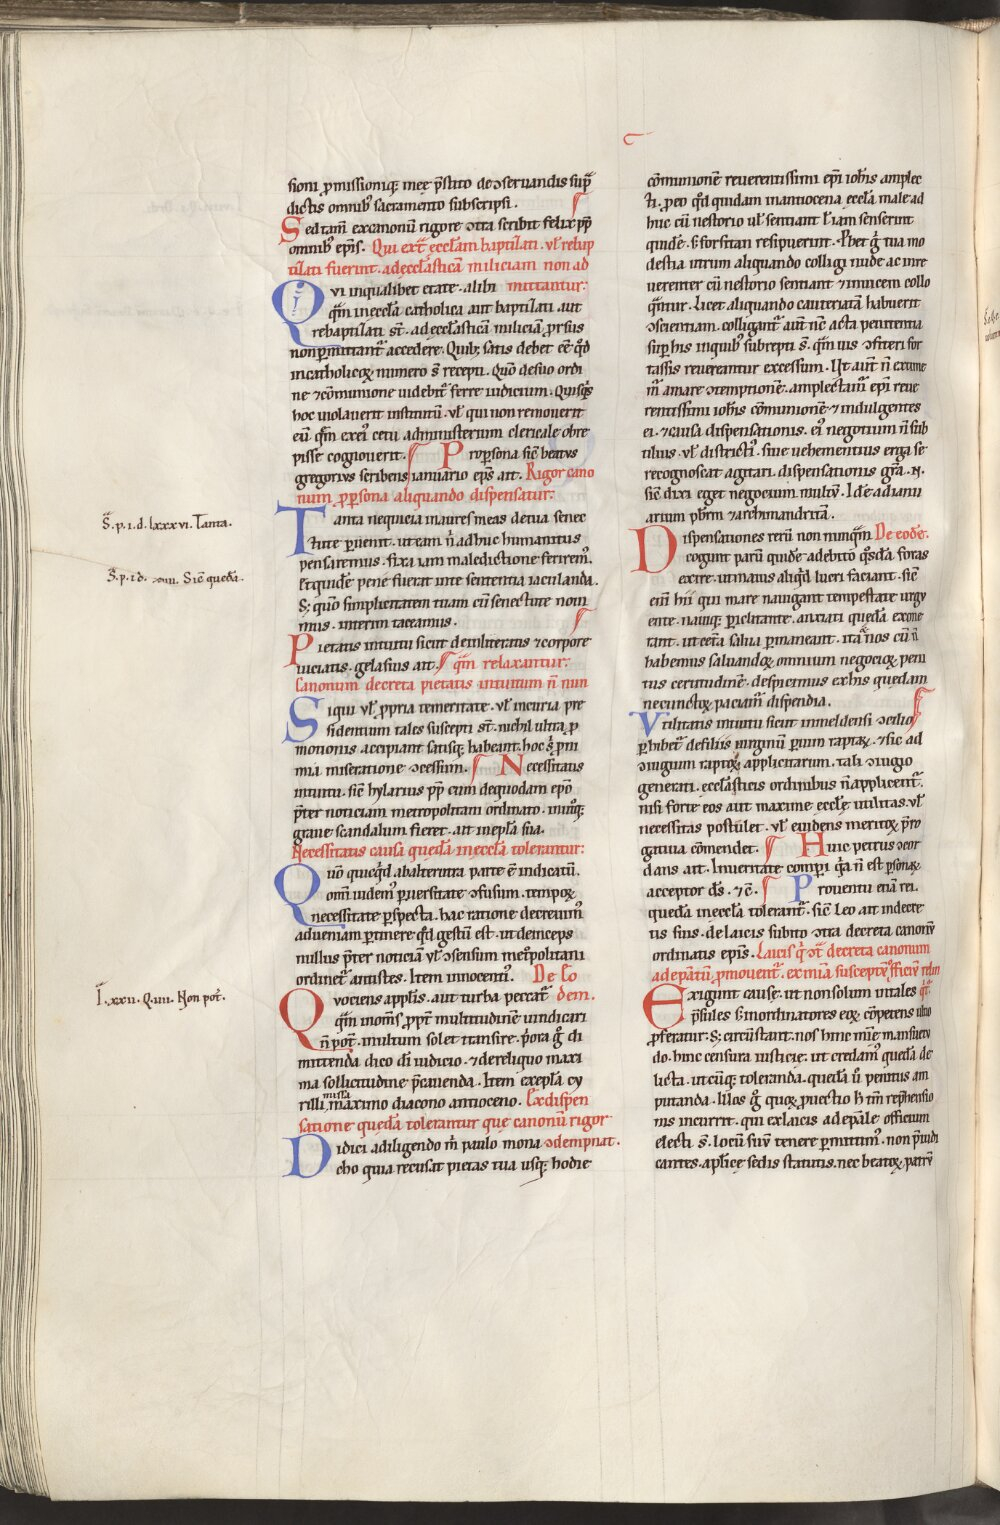 sioni ꝓmissioniq; meę p̄stito de ↄseruandis sup̄
dictis omnib; sacramento subscripsi.
Sed tam̄ ex canonū rigore ↄtra scribit felix pp̄
omnib; ep̄is. Qui ext̄ ecct̄am baptiſati. vƚ rebap
tiſati fuerint. ad ecctāsticā miliciam non ad
mittantur:
Qvi in qualibet etate. alibi
qm̄ in ecct̄a catholica aut baptiſati aut
rebaptiſati st̄. ad ecctāsticā miliciā prorsus
non ꝑmittant̄ accedere. Quib; satis debet eē qd̄
in catholicoꝝ numero s̄ recepti. Quō de suo ordi
ne ⁊ cōmunione videbit̄ ferre iudicium. Quisq̄s
hoc uiolauerit institutū. vƚ qui non remouerit
eū qm̄ ex ei; cetu ad ministerium clericale obre
pisse cognouerit. Pro ꝑsona sic̄ beatus
gregorius scribens ianuario ep̄s ait. Rigor cano
num ꝓ ꝑsona aliquando dispensatur:
Tanta nequicia in aures meas de tua senec
tute ꝑuenit. ut eam n̄ adhuc humanitus
pensaremus. fixa iam maledictione ferirem̄.
Et quidē pene fuerat in te sententia iaculanda.
S; quō simplicitatem tuam cū senectute noui
mus. interim taceamus.
Pietatis intuitu sicut de illiteratis ⁊ corpore
uiciatis. gelasius ait. qm̄ relaxantur:
Canonum decreta pietatis intuitum n̄ nun
Si qui vƚ ꝓpria temeritate. vƚ incuria pre
sidentium tales suscepti st̄. nichil ultra ꝓ
motionis accipiant satisq; habeant. hoc s̄ p̄ni
mia miseratione ↄcessum. Necessitatis
intuitu. sic̄ hylarius pp̄ cum de quodam ep̄o
p̄ter noticiam metropolitani ordinato. inūq;
graue scandalum fieret. ait in epl̄a sua.
Necessitatis causa quedā in ecct̄a tolerantur:
Quō quicq̄d ab alterutra parte ē indicatū.
Omī videm̄ ꝑuersitate ↄfusum. tempoꝝ
necessitate ꝑspecta. hac ratione decreuim̄
ad ueniam ꝑtinere qd̄ gestū est. ut deinceps
nullus p̄ter noticiā vƚ ↄsensum met̄politani
ordinet̄ antistes. Item innocenti;. De Eo
dem.
Quociens a ppl̄is. aut turba peccat̄
qm̄ in om̄s ꝓpt̄ multitudinē uindicari
n̄ pot̄. multum solet transire. p̄ora g̊ di
mittenda dico di iudicio. ⁊ de reliquo maxi
ma sollicitudine p̄cauenda. Item ex epl̄a cy
rilli missa maximo diacono antioceno. Ex dispen
satione quedā tolerantur que canonū rigor
ↄdempnat.
Didici a diligendo m̄ paulo mona
cho quia recusat pietas tua usq; hodie
cōmunionē reuerentissimi ep̄i ioh̄is amplec
ti. ꝓ eo qd̄ quidam in antiocena ecct̄a male ad
huc cū nestorio vƚ sentiant ƚ iam senserint
quidē. s; forsitan resipuerint. Ꝓbet g̊ tua mo
destia utrum aliquando colligi nude ac irre
uerenter cū nestorio sentiant ⁊ inuicem collo
q̄ntur. Licet aliquando cauteriatam habuerit
ↄscientiam. colligant̄ aut̄ nc̄ acta penitentia
sup̄ his in quib; subrepti s̄. qm̄ uis ↄfiteri for
tassis reuereantur excessum. Ut aut̄ n̄ extime
m̄ amare ↄtemptionē. amplectam̄ ep̄i reue
rentissimi ioh̄is cōmunionē ⁊ indulgentes
ei. ⁊ causa dispensationis. ei; negotium n̄ sub
tilius. vƚ districti;. siue uehementius erga se
recognoscat agitari. dispensationis gr̄a. N.
sic̄ dixi eget negocium multū. Idē ad ianu
arium pb̄rm ⁊ archimandritā.
Dispensationes rerū non nunqm̄ De eodē.
cogunt parū quidē a debito q̄sdā foras
exire. ut maius aliqd̄ lucri faciant. sic̄
eni hii qui mare nauigant tempestate urgu
ente. nauiq; ꝑiclitante. anxiati quedā exone
rant. ut cetā salua ꝑmaneant. ita ⁊ nos cū n̄
habemus saluandoꝝ omnium negocioꝝ peni
tus certitudinē. despicimus ex his quedam
ne cunctoꝝ paciam̄ dispendia.
Vtilitatis intuitu sicut in meldensi ↄcilio
ꝓhibet̄ de filiis uirginū ꝑ uim raptaꝝ. ⁊ sic ad
ↄiugium raptoꝝ applicitarum. tali ↄiugio
generati. ecctāsticis ordinibus n̄ applicent̄.
nisi forte eos aut maxime eccƚe utilitas. vƚ
necessitas postulet. vƚ euidens meritoꝝ p̄ro
gatiua cōmendet. Huic petrus ↄcor
dans ait. In ueritate comperi q̄a n̄ est ꝑsonaꝝ
acceptor ds̄. ⁊ c̄. Prouentu etiā rei.
quedā in ecct̄a tolerant̄. sic̄ Leo ait in decre
tis suis. de laicis subito ↄtra decreta canonū
ordinatis ep̄is. Laicis q̄ ↄt̄ decreta canonum
ad ep̄atū ꝓmouent̄. ex mīa susceptū officiū relin
qt̄.
Exigunt cause. ut non solum in tales
p̄sules s; in ordinatores eoꝝ cōpetens ultio
ꝓferatur. S; circūstant. nos hinc mīe mansuetu
do. hinc censura iusticie. ut credam̄ quedā de
licta. utcūq; toleranda. quedā ū penitus am
putanda. Illos g̊ quoꝝ ꝓuectio h tm̄ rep̄hensio
nis incurrit. qui ex laicis ad ep̄ale officium
electi s̄. locū suū tenere ꝑmittim̄. non p̄iudi
cantes. aplīce sedis statutis. nec beatoꝝ patrū
S̄. p. i. d. lxxxvi. Tanta.
S̄. p. i d. Sic̄ quedā.
I. xxii. Q. iiii. Non pot̄.